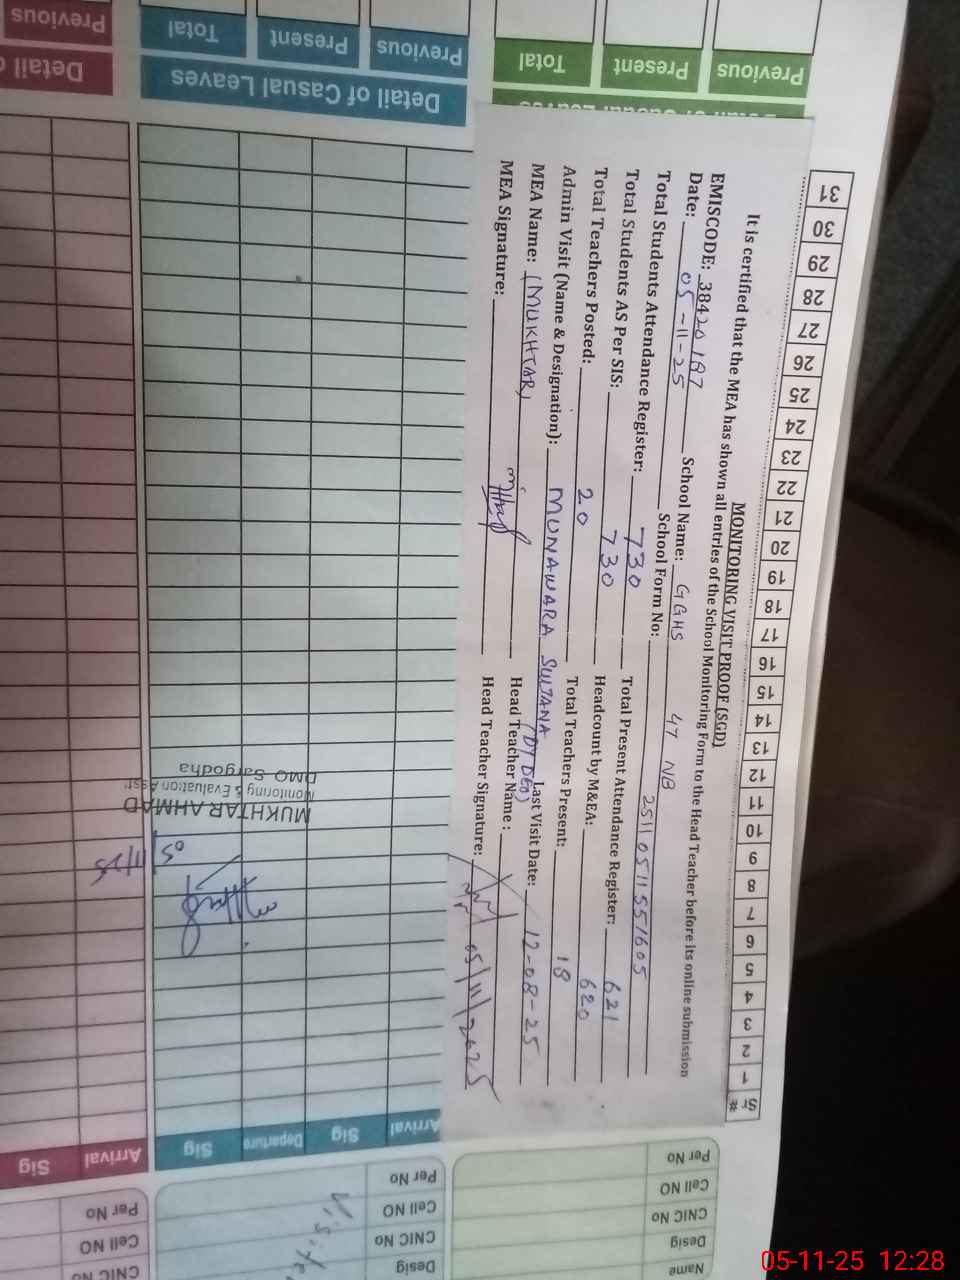 MONITORING VISIT PROOF (SGD)
It is certified that the MEA has shown all entries of the School Monitoring Form to the Head Teacher before its online submission
EMISCODE: 38420187 School Name: GGHS 47 NB
Date: 05-11-25 School Form No: 251105115551605
Total Students Attendance Register: 730 Total Present Attendance Register: 621
Total Students AS Per SIS: 730 Headcount by M&EA: 620
Total Teachers Posted: 20 Total Teachers Present: 18
Admin Visit (Name & Designation): MUNAWARA SULTANA (DY DEO) Last Visit Date: 12-08-25
MEA Name: (MUKHTAR) Head Teacher Name:
MEA Signature: Head Teacher Signature: 05/11/2025
Name
Desig
CNIC No
Cell NO
Per No
Desig
CNIC No
Cell NO
Per No
CNIC NO
Cell NO
Per No
Sr #
Arrival Sig Departure Sig
Arrival Sig
1
2
3
4
5
6
7
8
9
10
11
12
13
14
15
16
17
18
19
20
21
22
23
24
25
26
27
28
29
30
31
05/11/25
MUKHTAR AHMAD
Monitoring & Evaluation Asst:
DMO Sargodha
Detail of Casual Leaves
Previous Present Total
Previous Present Total
Previous
05-11-25 12:28